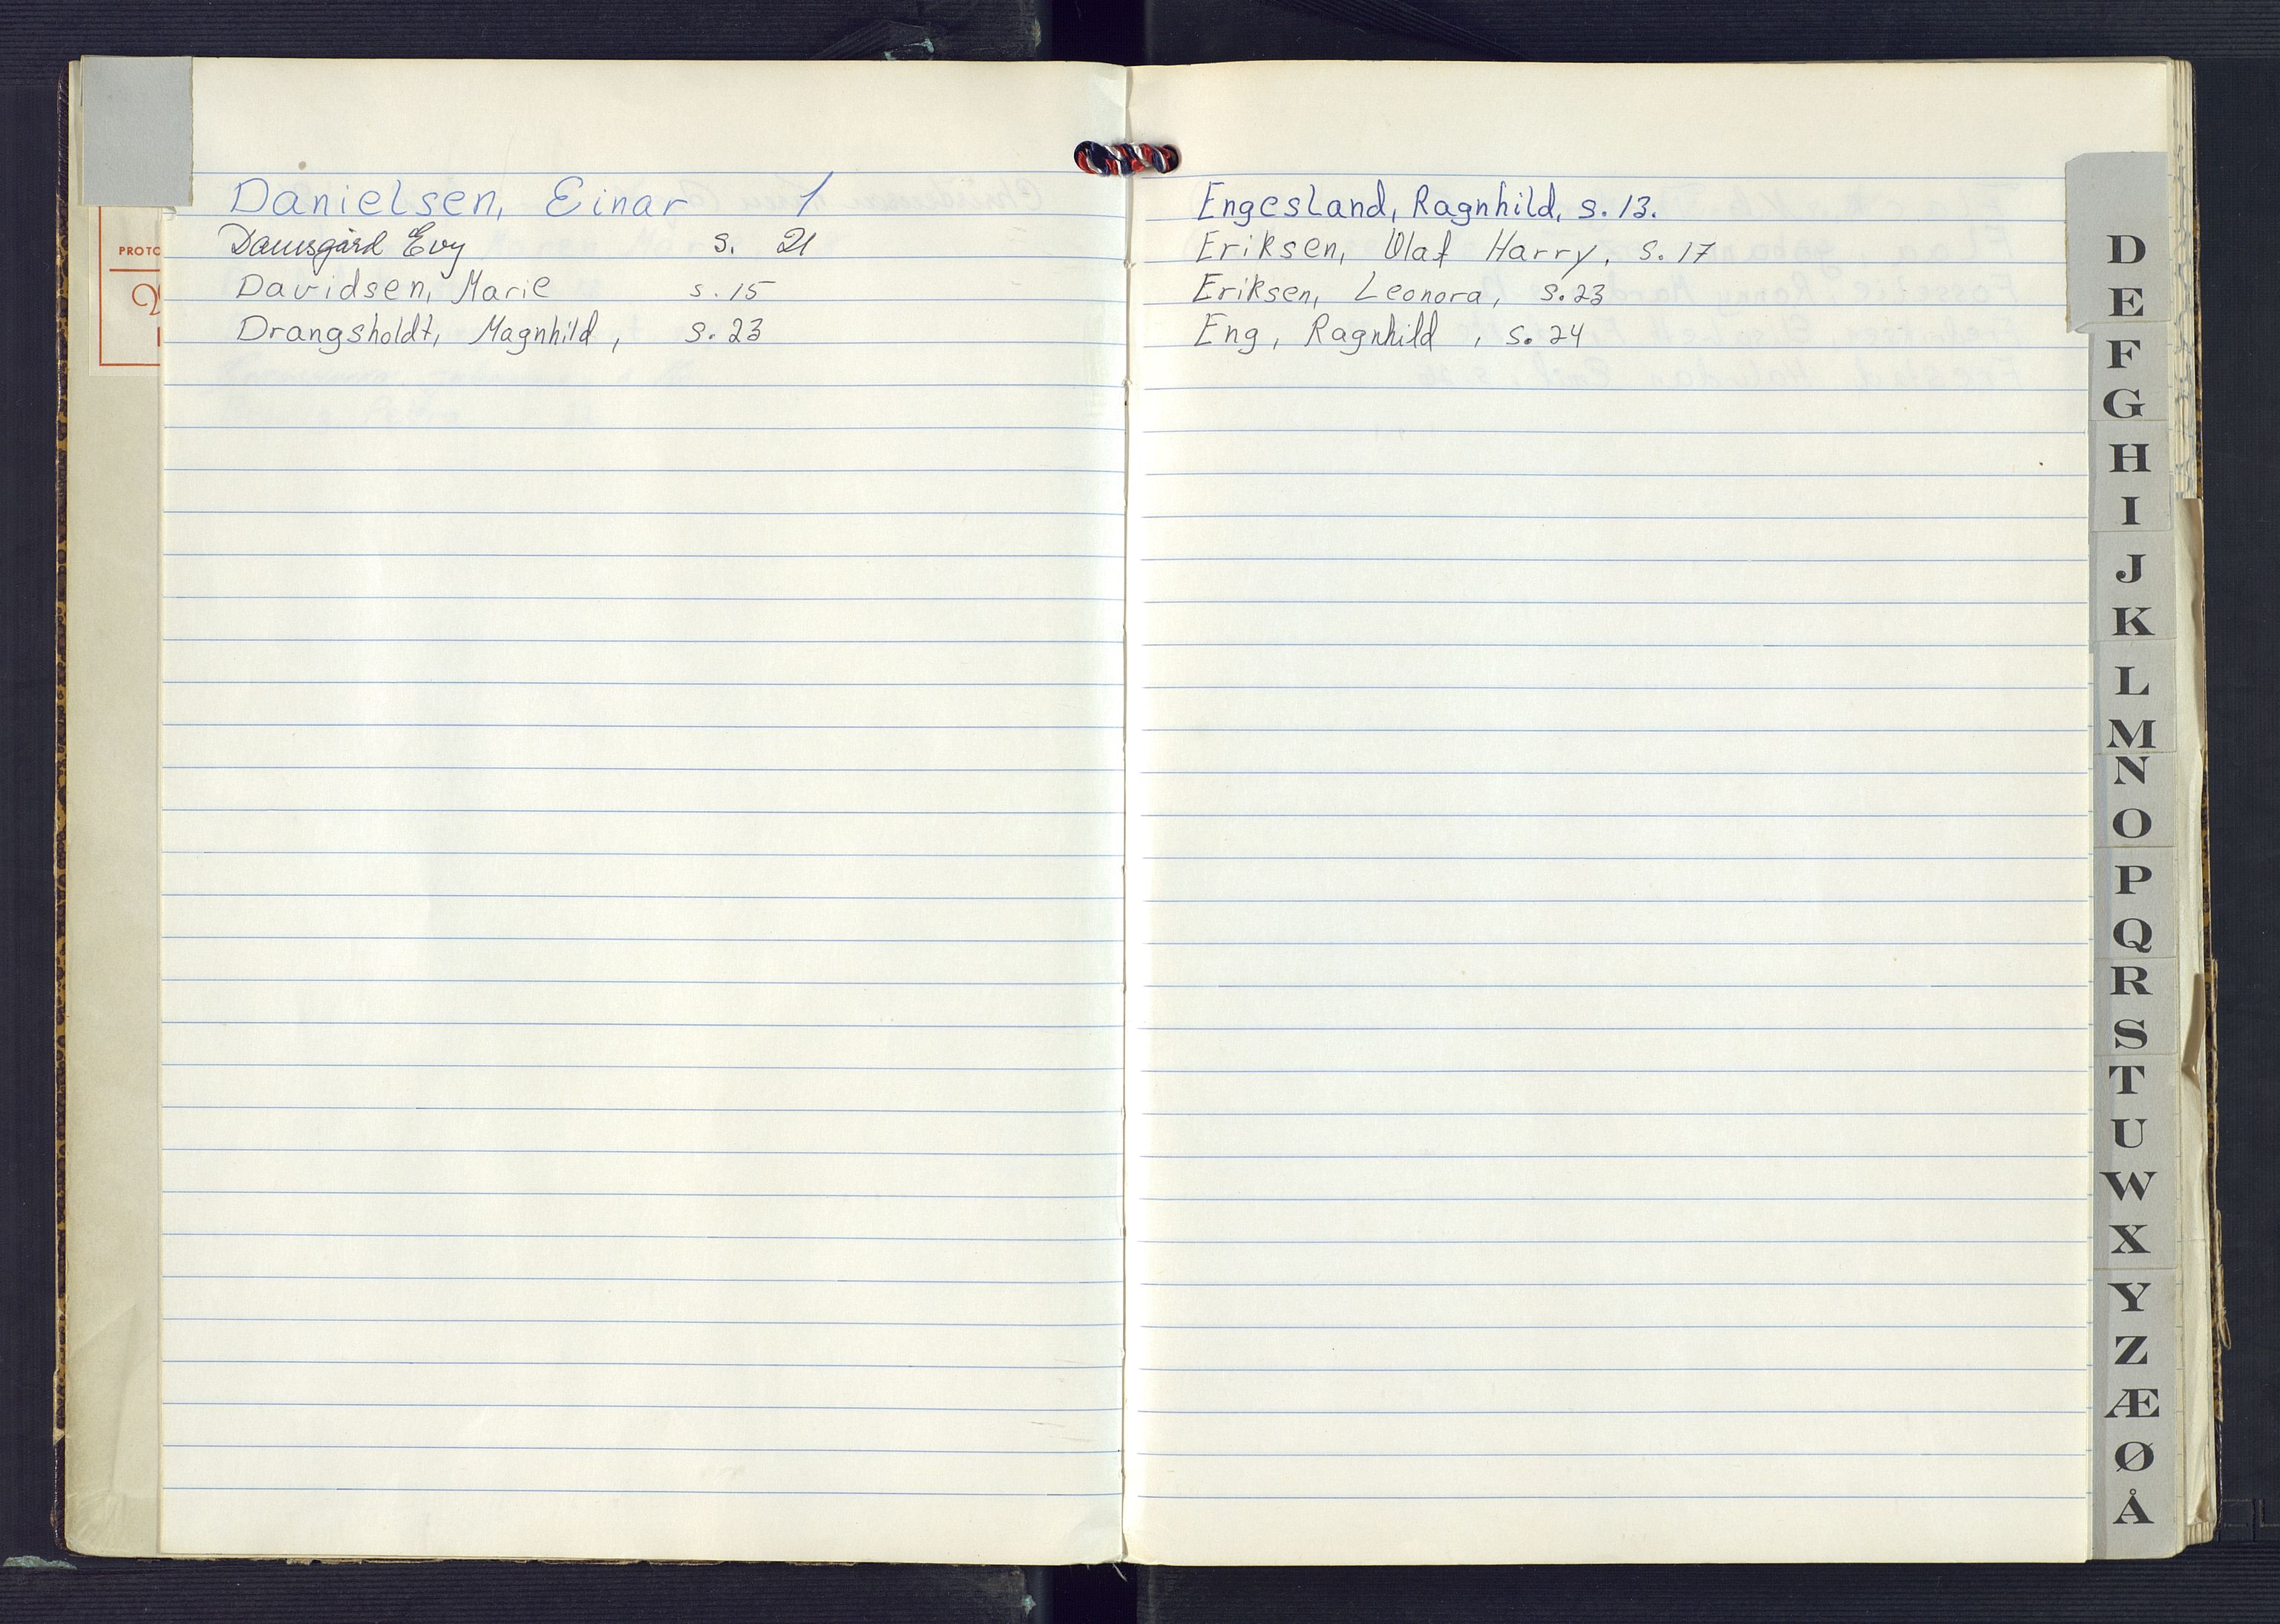 Danielsen, Einar 1
Damsgård Evy s. 21
Davidsen, Marie s. 15
Drangsholdt, Magnhild, s. 23
PROTO
Engesland, Ragnhild, s. 13.
Eriksen, Olaf Harry, s. 17
Eriksen, Leonora, s. 23
Eng, Ragnhild, s. 24
D
E
F
G
H
I
J
K
L
M
N
O
P
Q
R
S
T
U
W
X
Y
Z
Æ
Ø
Å